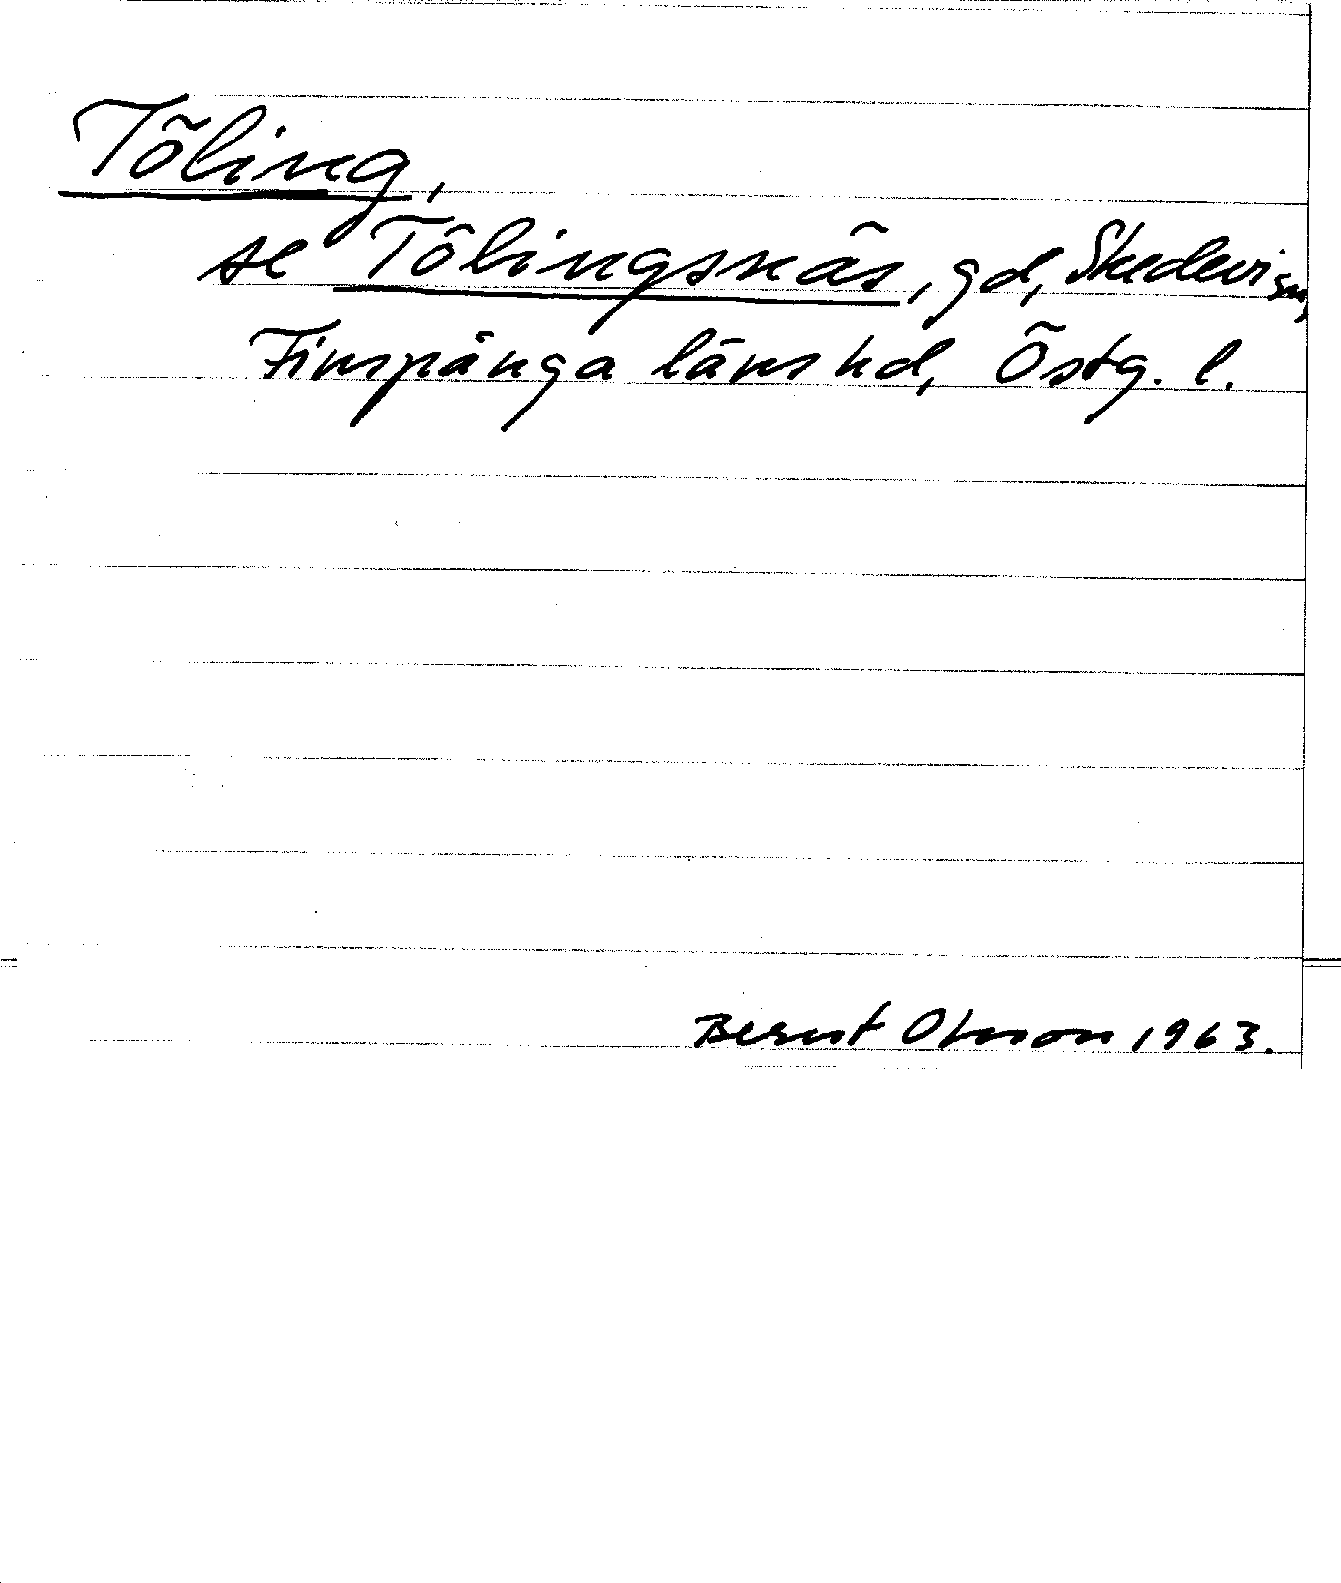 Töling,
se Tölingsnäs, gd, Skedevi sn,
Finspånga läns hd, Östg. l.
Bernt Olsson 1963.